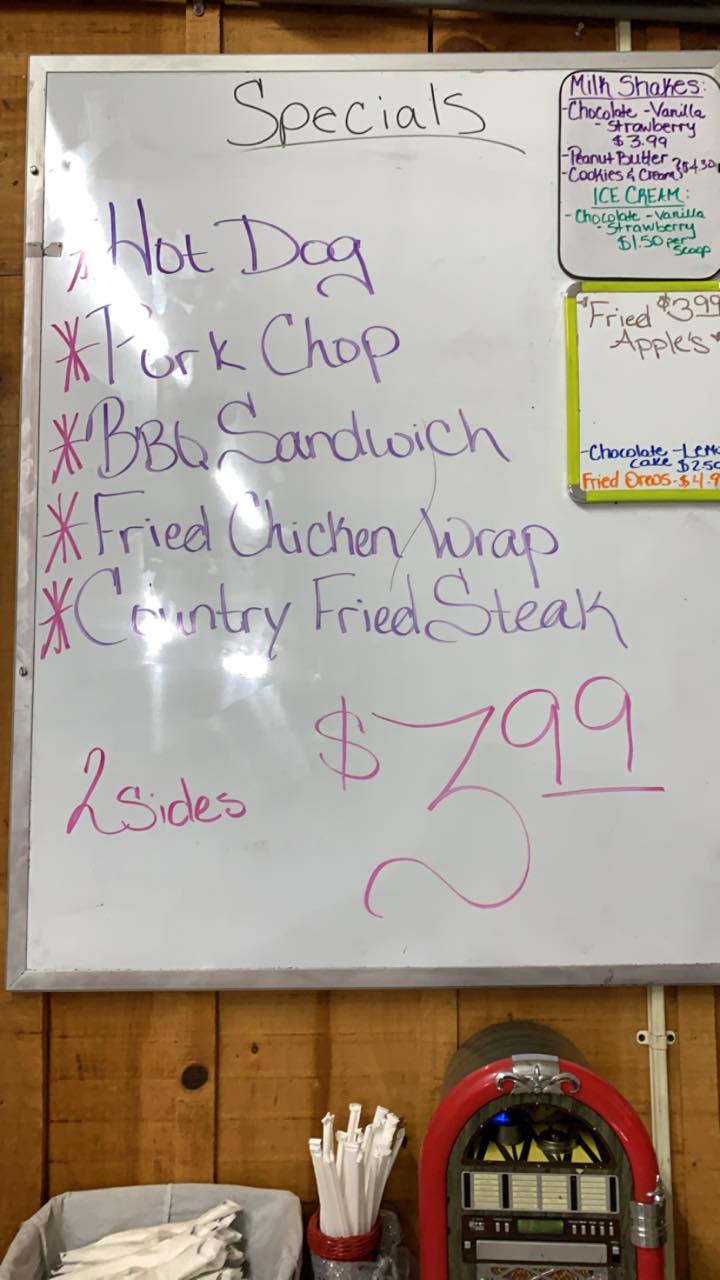 Specials
Hot Dog
Pork Chop
BBQ Sandwich
Fried Chicken Wrap
Country Fried Steak
2 Sides
$3.99
Milk Shakes:
-Chocolate -Vanilla
-Strawberry
$3.99
-Peanut Butter
-Cookies & Cream $4.50
ICE CREAM:
-Chocolate -Vanilla
-Strawberry
$1.50 per
Scoop
Fried $3.99
Apple's
-Chocolate
Cake $2.50
Fried Oreos-$4.9